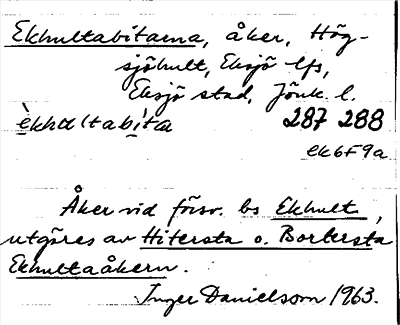 Ekhultabitarna, åker, Hög-
sjöhult, Eksjö lfs,
Eksjö stad, Jönk. l.
èkhultabíta 287 288
ek6F9a
Åker vid försv. bs Ekhult,
utgöres av Hitersta o. Bortersta
Ekhultaåkern.
Inger Danielsson 1963.